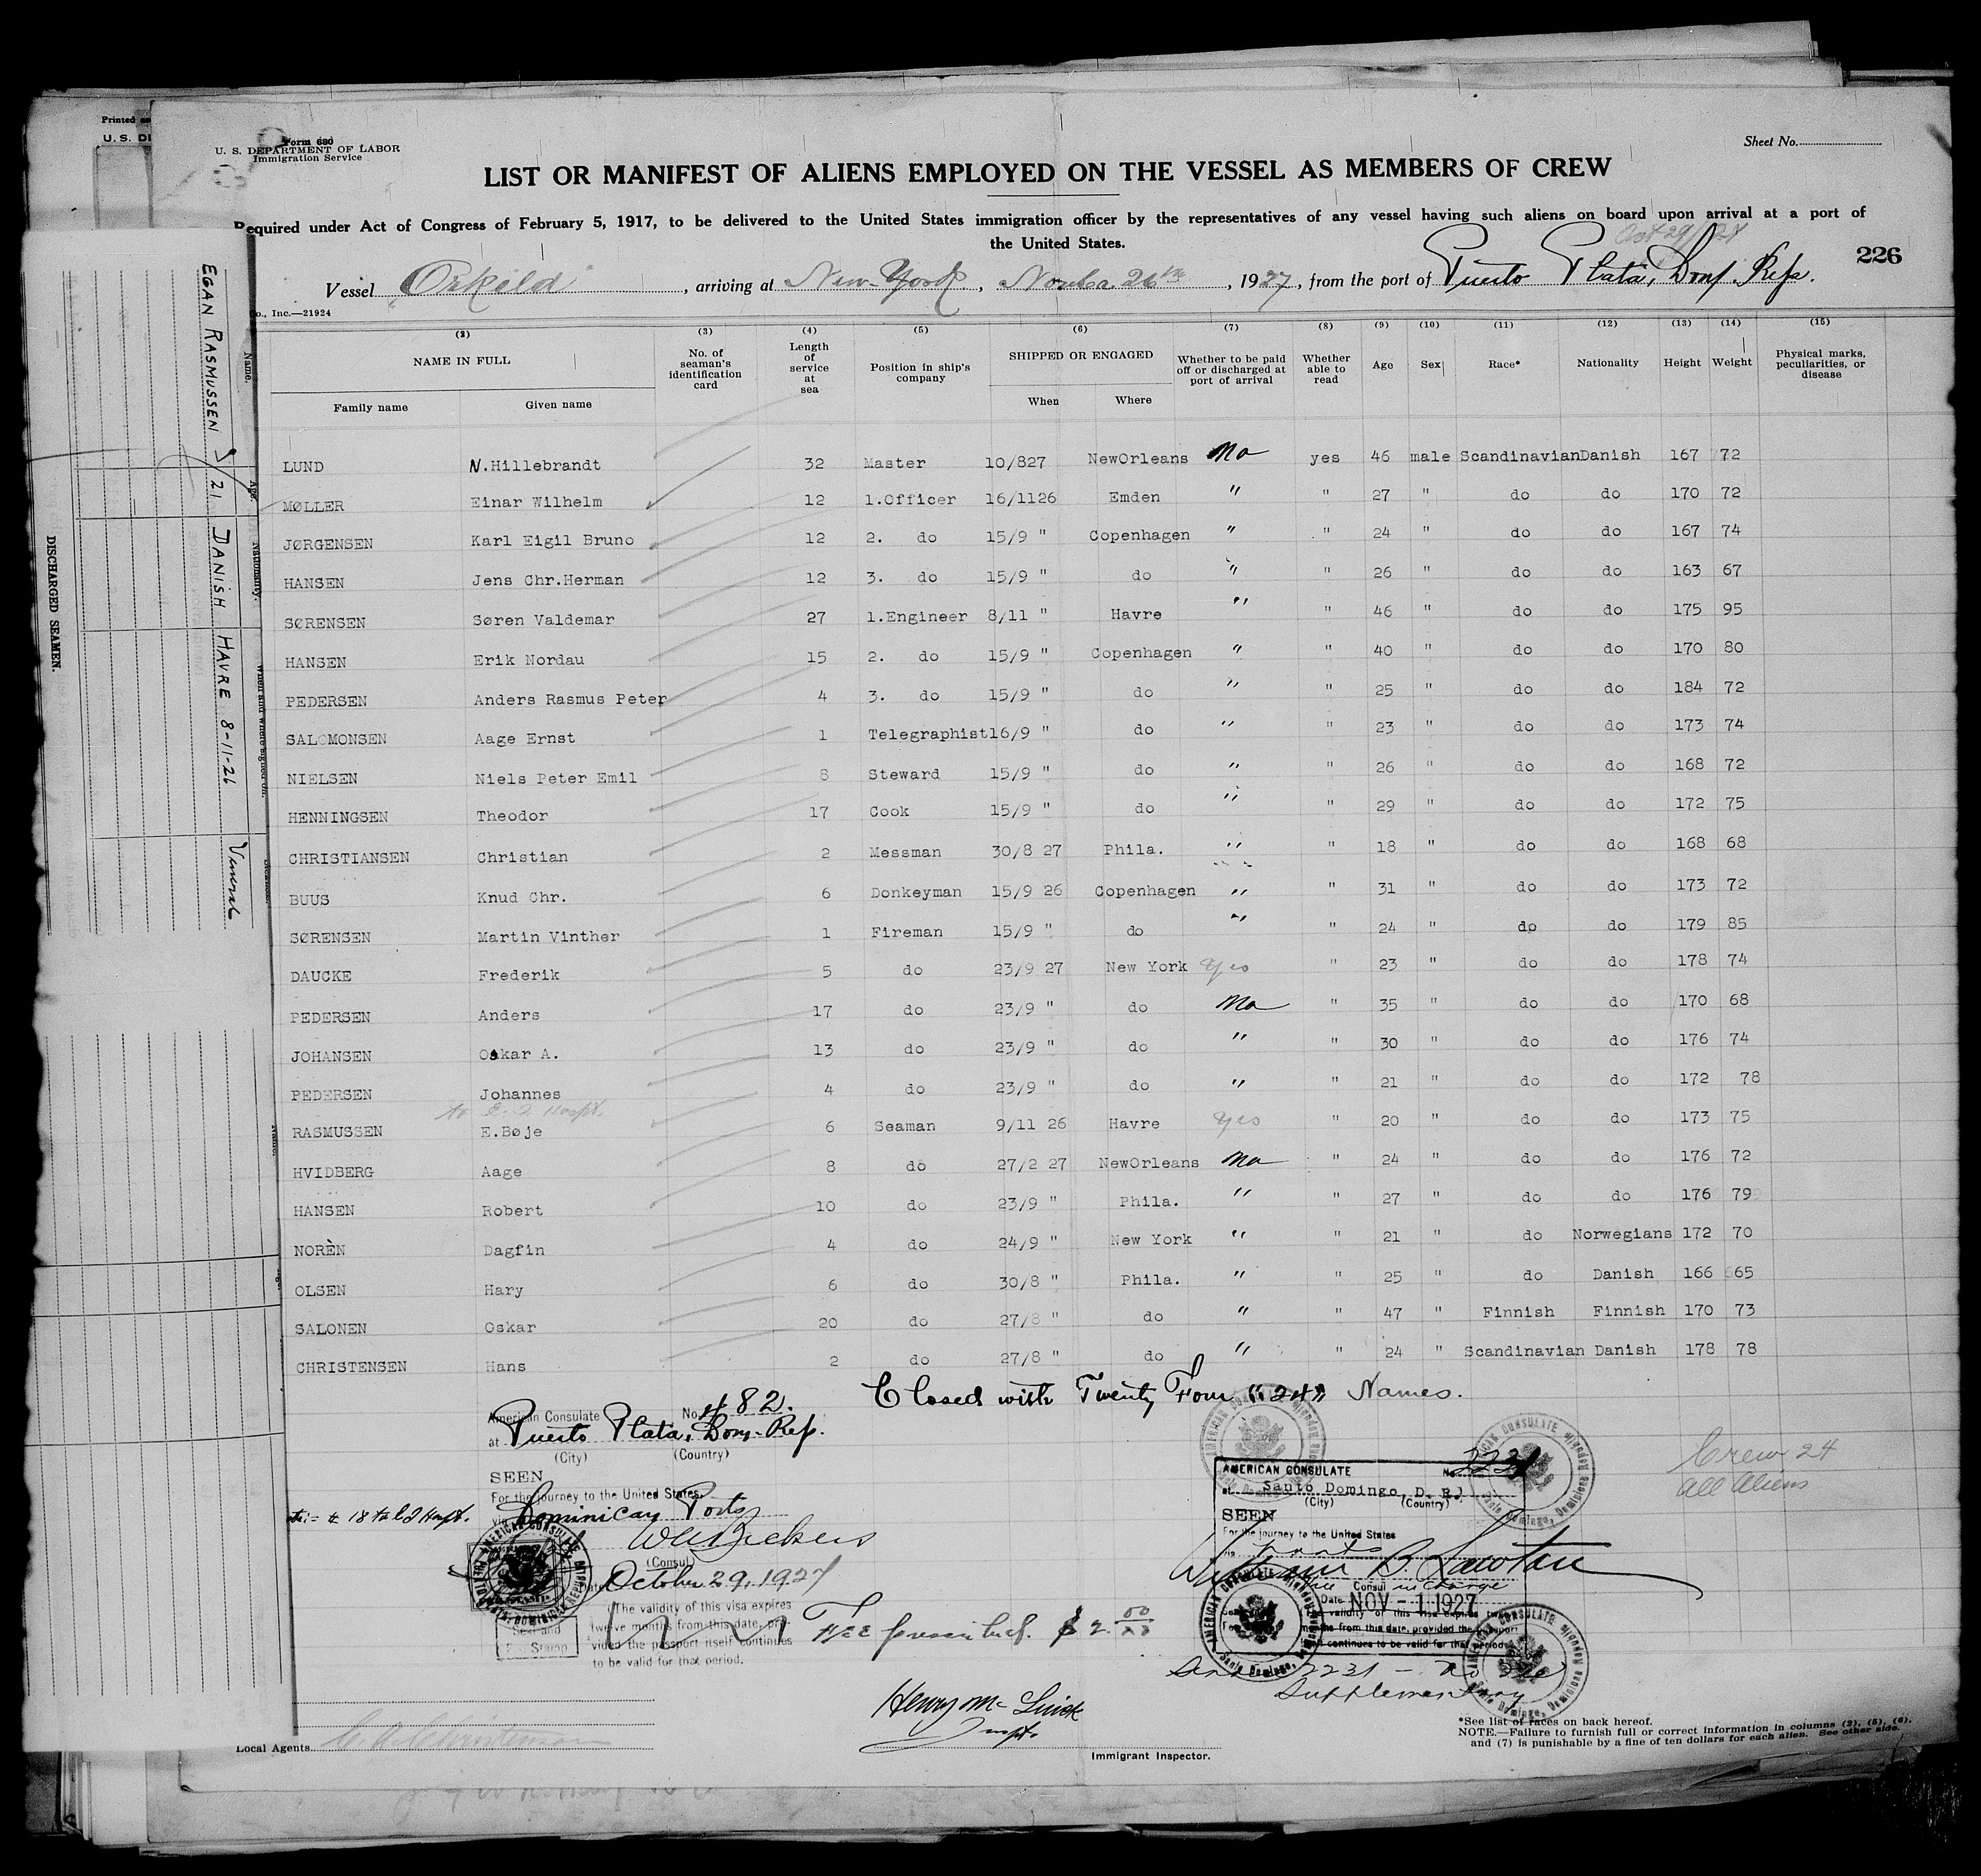 Printed
U. S. DE
Form 680
U. S. DEPARTMENT OF LABOR
Immigration Service
Sheet No.
LIST OR MANIFEST OF ALIENS EMPLOYED ON THE VESSEL AS MEMBERS OF CREW
Required under Act of Congress of February 5, 1917, to be delivered to the United States immigration officer by the representatives of any vessel having such aliens on board upon arrival at a port of
the United States.
Oct 29/27
226
Vessel Orkild, arriving at New-York, Novbr. 26th, 1927, from the port of Puerto Plata, Dom. Rep.
o., Inc.—21924
(2) (3) (4) (5) (6) (7) (8) (9) (10) (11) (12) (13) (14) (15)
NAME IN FULL
Family name Given name
No. of seaman's identification card
Length of service at sea
Position in ship's company
SHIPPED OR ENGAGED
When Where
Whether to be paid off or discharged at port of arrival
Whether able to read
Age Sex Race* Nationality Height Weight
Physical marks, peculiarities, or disease
LUND N.Hillebrandt 32 Master 10/827 NewOrleans No yes 46 male Scandinavian Danish 167 72
MØLLER Einar Wilhelm 12 1.Officer 16/1126 Emden " " 27 " do do 170 72
JØRGENSEN Karl Eigil Bruno 12 2. do 15/9 " Copenhagen " " 24 " do do 167 74
HANSEN Jens Chr.Herman 12 3. do 15/9 " do " " 26 " do do 163 67
SØRENSEN Søren Valdemar 27 1.Engineer 8/11 " Havre " " 46 " do do 175 95
HANSEN Erik Nordau 15 2. do 15/9 " Copenhagen " " 40 " do do 170 80
PEDERSEN Anders Rasmus Peter 4 3. do 15/9 " do " " 25 " do do 184 72
SALOMONSEN Aage Ernst 1 Telegraphist 16/9 " do " " 23 " do do 173 74
NIELSEN Niels Peter Emil 8 Steward 15/9 " do " " 26 " do do 168 72
HENNINGSEN Theodor 17 Cook 15/9 " do " " 29 " do do 172 75
CHRISTIANSEN Christian 2 Messman 30/8 27 Phila. " " 18 " do do 168 68
BUUS Knud Chr. 6 Donkeyman 15/9 26 Copenhagen " " 31 " do do 173 72
SØRENSEN Martin Vinther 1 Fireman 15/9 " do " " 24 " do do 179 85
DAUCKE Frederik 5 do 23/9 27 New York Yes " 23 " do do 178 74
PEDERSEN Anders 17 do 23/9 " do No " 35 " do do 170 68
JOHANSEN Oskar A. 13 do 23/9 " do " " 30 " do do 176 74
PEDERSEN Johannes 4 do 23/9 " do " " 21 " do do 172 78
to E.I. Hospt.
RASMUSSEN E.Bøje 6 Seaman 9/11 26 Havre Yes " 20 " do do 173 75
HVIDBERG Aage 8 do 27/2 27 NewOrleans No " 24 " do do 176 72
HANSEN Robert 10 do 23/9 " Phila. " " 27 " do do 176 79
NORÈN Dagfin 4 do 24/9 " New York " " 21 " do Norwegians 172 70
OLSEN Hary 6 do 30/8 " Phila. " " 25 " do Danish 166 65
SALONEN Oskar 20 do 27/8 " do " " 47 " Finnish Finnish 170 73
CHRISTENSEN Hans 2 do 27/8 " do " " 24 " Scandinavian Danish 178 78
Closed with Twenty Four "24" Names.
American Consulate No. 482.
at Puerto Plata, Dom. Rep.
(City) (Country)
SEEN
For the journey to the United States,
via Dominican Ports
(Consul)
Date October 29, 1927
The validity of this visa expires
twelve months from this date, pro-
vided the passport itself continues
to be valid for that period.
Seal and
Fee Stamp
Fee prescribed. $ 2.00
AMERICAN CONSULATE No. 2231
at Santo Domingo, D. R.
(City) (Country)
SEEN
For the journey to the United States
via ports
William B. Lawton
Vice Consul in Charge
Date NOV - 1 1927
validity of this visa expires twelve
months from this date, provided the passport
itself continues to be valid for that period
AMERICAN CONSULATE Santo Domingo, Dominican Republic
Supplementary
Crew 24
All Aliens
Henry Mc
Inspt.
Immigrant Inspector.
Local Agents C. A. Christensen
*See list of races on back hereof.
NOTE.—Failure to furnish full or correct information in columns (2), (5), (6),
and (7) is punishable by a fine of ten dollars for each alien. See other side.
DISCHARGED SEAMEN.
Name. Age. Nationality. When and where signed on.
EGAN RASMUSSEN 21 DANISH HAVRE 8-11-26